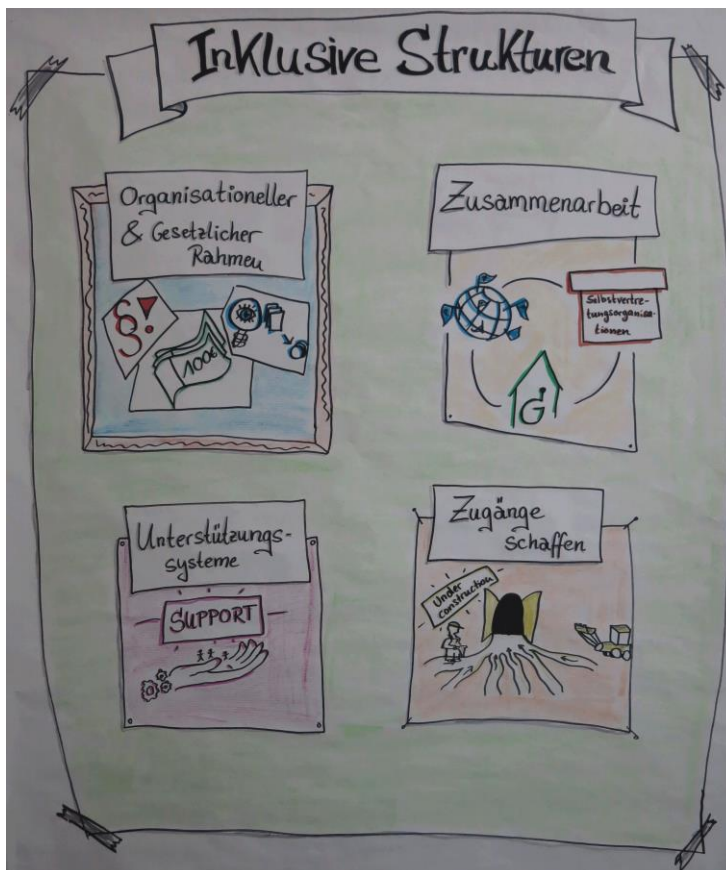 Inklusive Strukturen
Organisationeller
& Gesetzlicher
Rahmen
§!
100€
Zusammenarbeit
Selbstvertre-
tungsorganisa-
tionen
G
Unterstützungs-
systeme
SUPPORT
Zugänge
schaffen
Under
construction